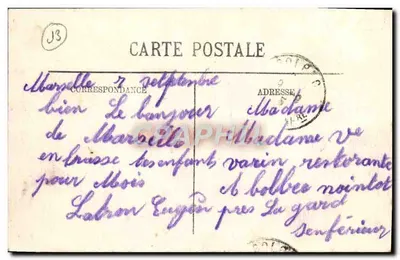 13
CARTE POSTALE
CORRESPONDANCE
ADRESSE
Marselle 7 selptembre
bien Le bonjour
de Marseille
en brasse les enfants
pour Mois
Labron Eugên
Madame
Madame ve
varin restorante
A bolbec nointot
pres La gard
senférieur